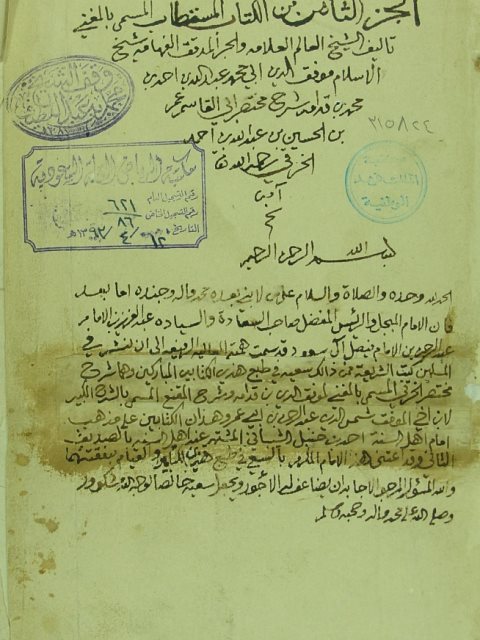 الجزء الثامن من الكتاب المستطاب المسمى بالمغني
تاليف الشيخ العالم العلامه والحبر المدقق الفهامه شيخ
الاسلام موفق الدين ابي محمد عبد الله بن احمد بن
محمد بن قدامه شرح مختصر ابي القاسم عمر
بن الحسين بن عبد الله بن احمد
الخرقي رحمه الله تعالى
آمين
٨٦
٦٢١
مكتبة الرياض العامة السعودية
رقم التسجيل العام
رقم التسجيل الخاص
التاريخ
بسم الله الرحمن الرحيم
الحمد لله وحده والصلاة والسلام على من لا نبي بعده محمد واله وجنده اما بعد
فان الامام المبجل والرئيس المفضل صاحب السعادة والسياده عبد العزيز بن الامام
عبد الرحمن بن الامام فيصل ال سعود قد سمت همته العاليه الرفيعه الى ان ينشر في
المسلمين كتب الشريعة من ذالك سعيه في طبع هذين الكتابين المباركين وهما شرح
مختصر الخرقي المسمى بالمغني لموفق الدين بن قدامه وشرح المقنع المسمى بالشرح الكبير
لابن اخي الموفق شمس الدين عبد الرحمن بن ابي عمر وهذان الكتابين على مذهب
امام اهل السنة احمد بن حنبل الشيباني المشتهر عند اهل السنه بالصديق
الثاني وقد اعتنى هذا الامام المذكور بالسعي في طبع هذين الكتابين والقيام بنفقتهما
والله المسئول المرجو الاجابه ان يضاعف له الاجور ويجعل سعيه خالصا لوجهه
وصلى الله على محمد واله وصحبه وسلم